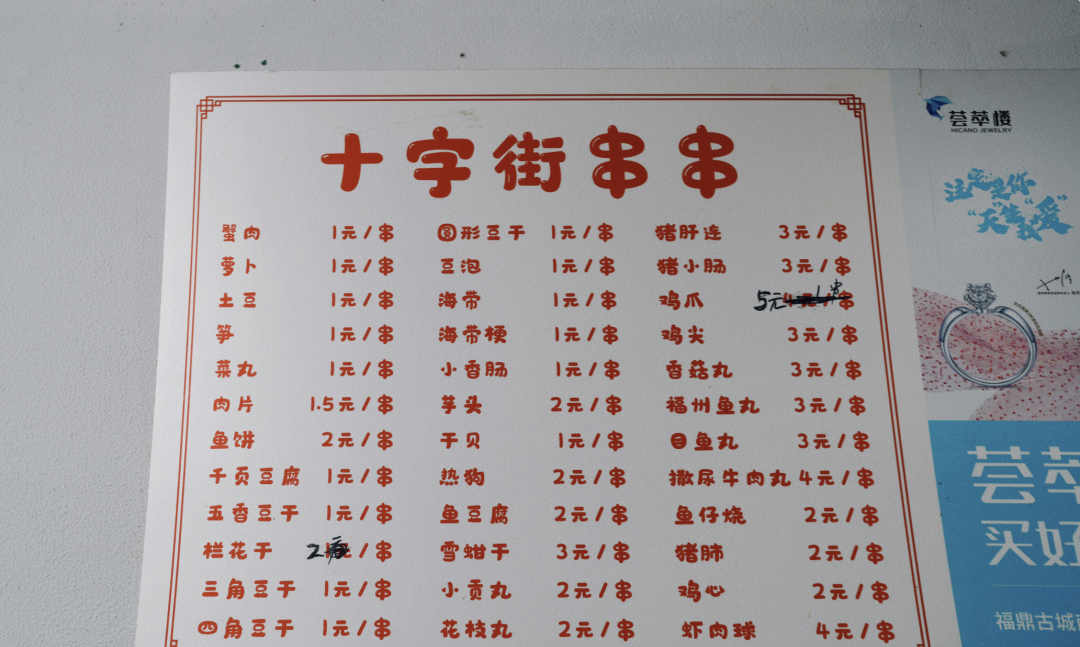 十字街串串
蟹肉 1元/串 圆形豆干 1元/串 猪肝连 3元/串
萝卜 1元/串 豆泡 1元/串 猪小肠 3元/串
土豆 1元/串 海带 1元/串 鸡爪 5元/串
笋 1元/串 海带梗 1元/串 鸡尖 3元/串
菜丸 1元/串 小香肠 1元/串 香菇丸 3元/串
肉片 1.5元/串 芋头 2元/串 福州鱼丸 3元/串
鱼饼 2元/串 干贝 1元/串 目鱼丸 3元/串
千页豆腐 1元/串 热狗 2元/串 撒尿牛肉丸 4元/串
五香豆干 1元/串 鱼豆腐 2元/串 鱼仔烧 2元/串
栏花干 2元/串 雪蚶干 3元/串 猪肺 2元/串
三角豆干 1元/串 小贡丸 2元/串 鸡心 2元/串
四角豆干 1元/串 花枝丸 2元/串 虾肉球 4元/串
荟萃楼
HICANO JEWELRY
注定是你
“天生我爱”
荟萃
买好
福鼎古城南